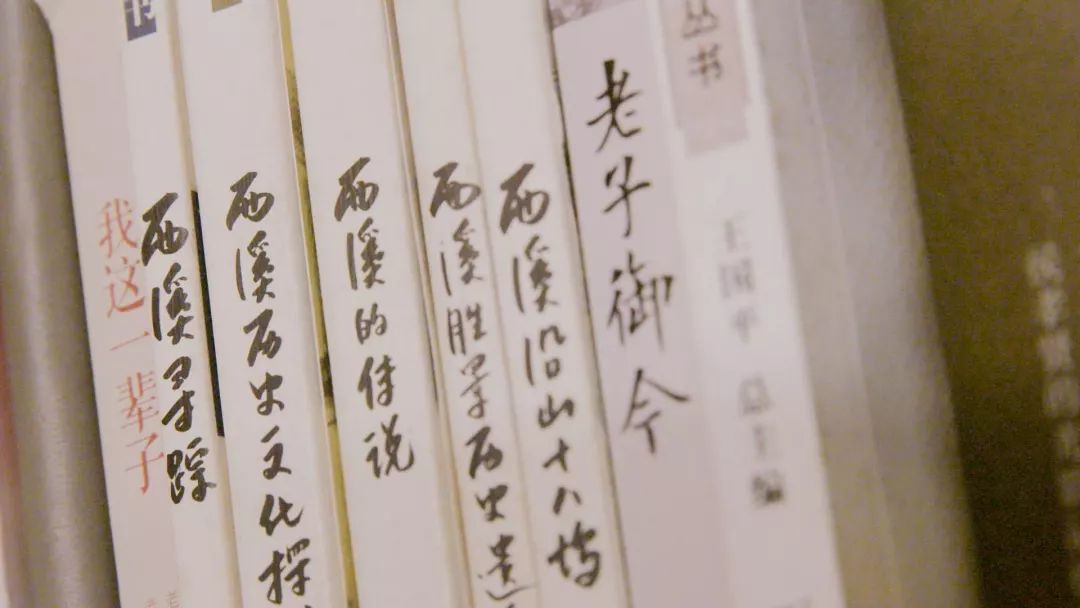 我这一辈子
西溪寻踪
西溪历史文化探
西溪的传说
西溪胜景历史遗
西溪沿山十八坞
老子御今
丛书
王国平 总主编